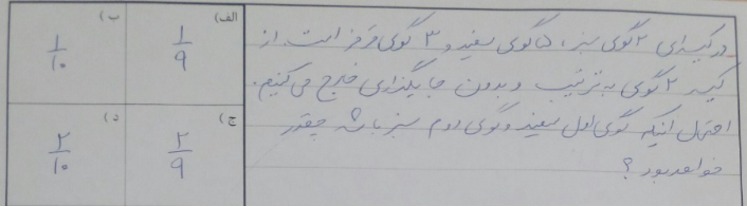 در کیسه‌ای ۲ گوی سبز، ۵ گوی سفید و ۳ گوی قرمز است. از
کیسه ۲ گوی به ترتیب و بدون جایگذاری خارج می‌کنیم.
احتمال اینکه گوی اول سفید و گوی دوم سبز باشد چقدر
خواهد بود؟
الف) ۱/۹
ب) ۱/۱۰
ج) ۲/۹
د) ۲/۱۰